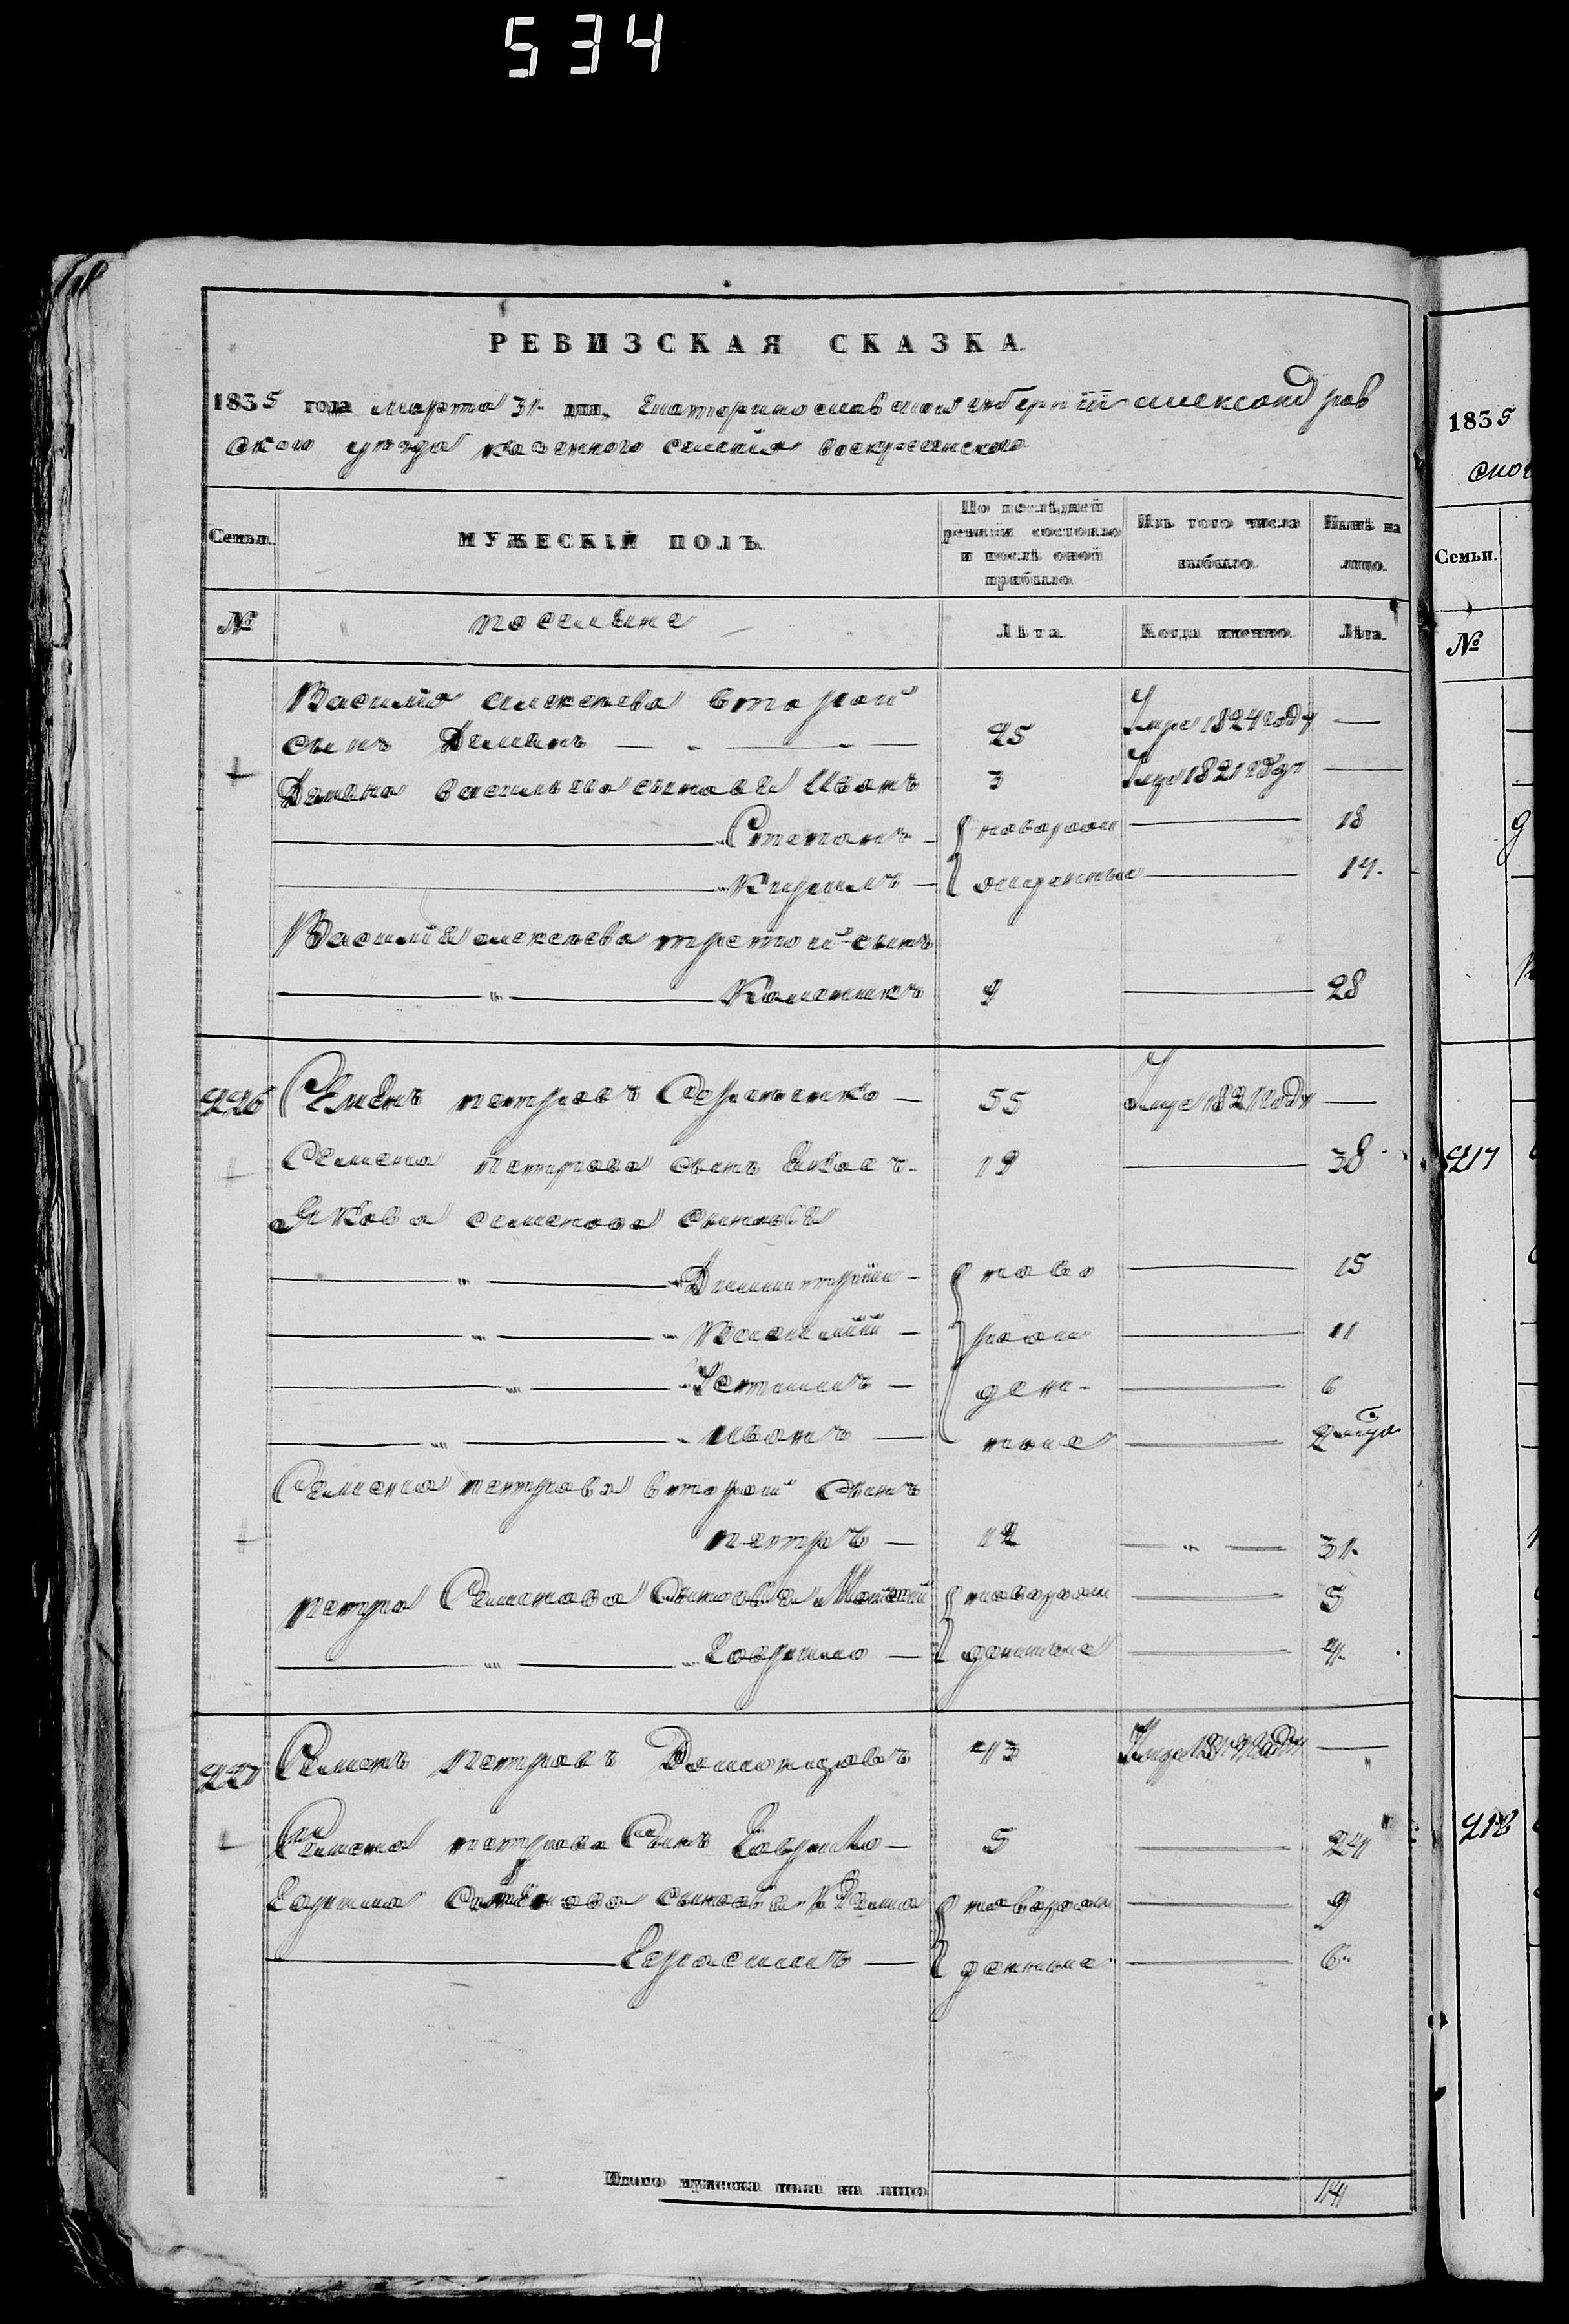 534
РЕВИЗСКАЯ СКАЗКА.
1835 года марта 31 дня, Екатеринославской губернiи александров
ского уезда казенного селенiя воскресенского
Семьи.
МУЖЕСКІЙ ПОЛЪ.
По послѣдней ревизіи состояло и послѣ оной прибыло.
Изъ того числа выбыло.
Нынѣ на лицо.
№
поселяне
Лѣта.
Когда именно.
Лѣта.
Василия алексеева второй
сынъ Демянъ 25 Умре 1824 году —
Демяна васильева сыновья Иванъ 3 Умре 1821 году —
Степанъ — новорож 18
Кирилъ — жденные 14.
Василия алексеева третой сынъ
Каленикъ 9 28
226 Семенъ петровъ Сергиенко — 55 Умре 1821 году —
Семена петрова сынъ Яковъ 19 38
Якова семенова сыновья
Димитрiй — ново 15
Василiй — рож 11
Устимъ — ден- 6
Иванъ — ные 2 года
Семена петрова второй сынъ
петръ — 12 31.
петра Семенова сыновья новорож 5
Гаврило — денные 4.
227 Семенъ петровъ 43 Умре —
Семена петрова Сынъ Гаврило — 5 24
Гаврила Семенова сыновья новорож 9
Герасимъ — денные 6
Итого мужеска пола на лицо 14
1835
ског
Семьи.
№
217
218